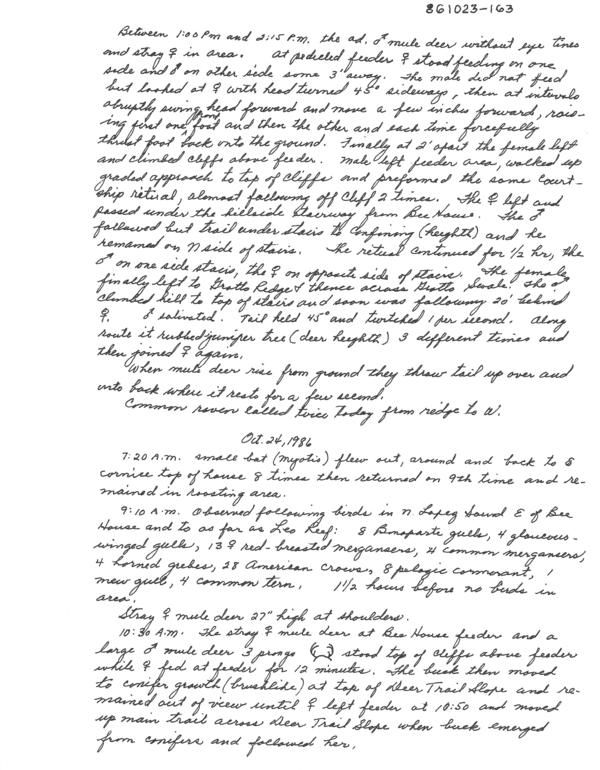 861023-163
Between 1:00 Pm and 2:15 P.M. the ad. ♂ mule deer without eye tines
and stray ♀ in area. At pedicled feeder ♀ stood feeding on one
side and ♂ on other side some 3' away. The male did not feed
but looked at ♀ with head turned 45° sideways, then at intervals
abruptly swing head forward and move a few inches forward, rais-
ing first one front foot and then the other and each time forcefully
thrust foot back onto the ground. Finally at 2' apart the female left
and climbed cliffs above feeder. Male left feeder area, walked up
graded approach to top of cliffs and preformed the same court-
ship retual, almost following off cliff 2 times. The ♀ left and
passed under the hillside stairway from Bee House. The ♂
followed but trail under stairs to confining (heighth) and he
remained on N side of stairs. The retual continued for ½ hr, the
♂ on one side stairs, the ♀ on opposite side of stairs. The female
finally left to Grotto Ridge & thence across Grotto Swale. The ♂
climbed hill to top of stairs and soon was following 20' behind
♀. ♂ salivated. Tail held 45° and twitched 1 per second. Along
route it rubbed juniper tree (deer heighth) 3 different times and
then joined ♀ again.
When mule deer rise from ground they throw tail up over and
onto back where it rests for a few second.
Common raven called twice today from ridge to W.
Oct. 24, 1986
7:20 A.M. small bat (myotis) flew out, around and back to S
cornice top of house 8 times then returned on 9th time and re-
mained in roosting area.
9:10 A.M. Observed following birds in N. Lopez Sound E of Bee
House and to as far as Leo Reef: 8 Bonaparte gulls, 4 glaucous-
winged gulls, 13 ♀ red-breasted mergansers, 4 common mergansers,
4 horned grebes, 28 American crows, 8 pelagic cormorant, 1
mew gull, 4 common tern. 1½ hours before no birds in
area.
Stray ♀ mule deer 27" high at shoulders.
10:30 A.M. The stray ♀ mule deer at Bee House feeder and a
large ♂ mule deer 3 prongs stood top of cliffs above feeder
while ♀ fed at feeder for 12 minutes. The buck then moved
to conifer growth (brushlike) at top of Deer Trail Slope and re-
mained out of view until ♀ left feeder at 10:50 and moved
up main trail across Deer Trail Slope when buck emerged
from conifers and followed her.